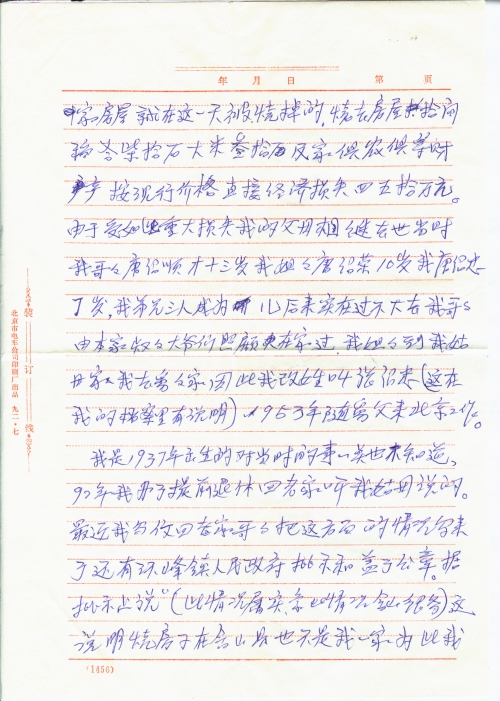 年 月 日 第 页
家房屋就在这一天被烧掉的，烧去房屋拾间
稻谷柴拾石大米叁拾石及家俱农俱等财
产 按现行价格直接经济损失四五拾万元。
由于受如此重大损失我的父母相继去世当时
我哥々唐绍顺才十三岁我姐々唐绍荣10岁我唐绍忠
7岁，我弟兄三人成为 儿后来实在过不大右我哥々
由本家叔々大爷们照顾在家过，我姐々到我姑
母家，我去舅々家因此我改姓叫张绍忠（这在
我的档案里有说明）1953年随舅父来北京工作。
我是1937年出生的对当时的事以是也不知道，
92年我办了提前退休回老家听我姑母说的。
最近我与信回老家哥々把这方面的情况写来
了还有环峰镇人民政府批示和盖了公章。据
批示上说"（此情况属实，象此情况含山很多）这
说明烧房子在含山县也不是我一家为此我
装订线
北京市电车公司印刷厂出品 九二·七
(1456)